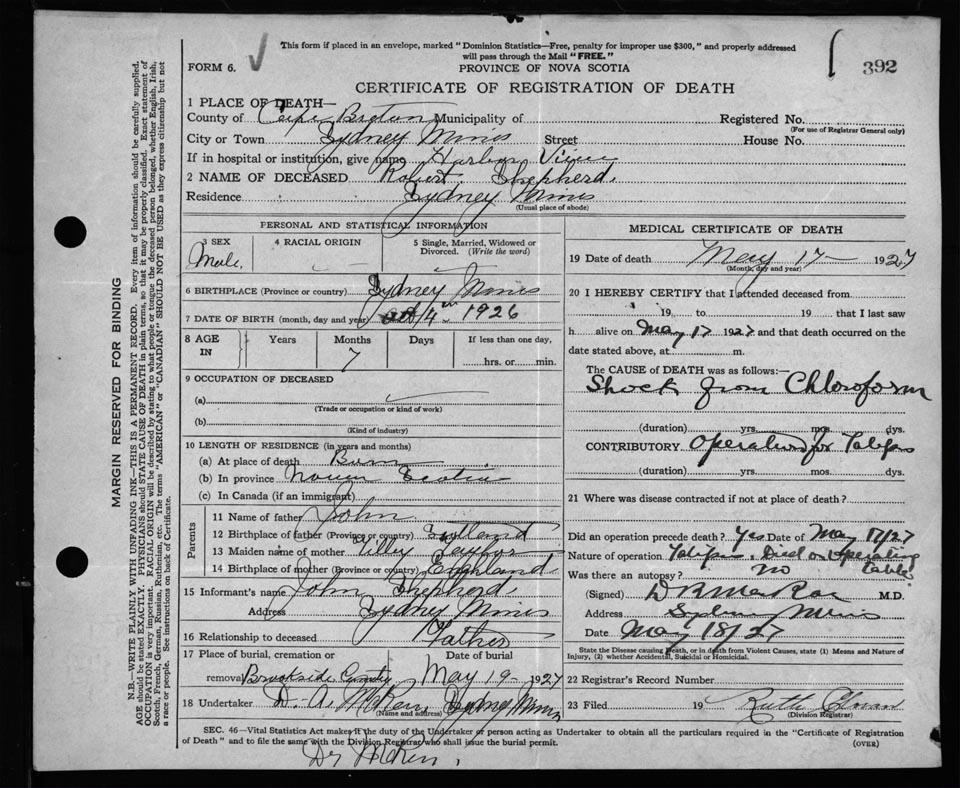 This form if placed in an envelope, marked "Dominion Statistics—Free, penalty for improper use $300," and properly addressed
will pass through the Mail "FREE."
392
FORM 6.
PROVINCE OF NOVA SCOTIA
CERTIFICATE OF REGISTRATION OF DEATH
1 PLACE OF DEATH—
County of Cape Breton Municipality of Registered No.
(For use of Registrar General only)
City or Town Sydney Mines Street House No.
If in hospital or institution, give name Harbor View
2 NAME OF DECEASED Robert Shepherd
Residence Sydney Mines
(Usual place of abode)
MARGIN RESERVED FOR BINDING
N.B.—WRITE PLAINLY WITH UNFADING INK—THIS IS A PERMANENT RECORD. Every item of information should be carefully supplied.
AGE should be stated EXACTLY. PHYSICIANS should STATE CAUSE OF DEATH in plain terms, so that it may be properly classified. Exact statement of
OCCUPATION is very important. RACIAL ORIGIN will be described by stating to what people or tongue the deceased person belonged, whether English, Irish,
Scotch, French, German, Russian, Ruthenian, etc. The terms "AMERICAN" or "CANADIAN" SHOULD NOT BE USED as they express citizenship but not
a race or people. See instructions on back of Certificate.
PERSONAL AND STATISTICAL INFORMATION
3 SEX
Male
4 RACIAL ORIGIN
5 Single, Married, Widowed or
Divorced. (Write the word)
6 BIRTHPLACE (Province or country) Sydney Mines
7 DATE OF BIRTH (month, day and year) Oct 14 1926
8 AGE IN Years Months Days If less than one day,
7 hrs. or min.
9 OCCUPATION OF DECEASED
(a)
(Trade or occupation or kind of work)
(b)
(Kind of industry)
10 LENGTH OF RESIDENCE (in years and months)
(a) At place of death
(b) In province Nova Scotia
(c) In Canada (if an immigrant)
Parents
11 Name of father John
12 Birthplace of father (Province or country) Scotland
13 Maiden name of mother Tilley Taylor
14 Birthplace of mother (Province or country) England
15 Informant's name John Shepherd
Address Sydney Mines
16 Relationship to deceased Father
17 Place of burial, cremation or Date of burial
removal Brookside Cemetery May 19 1927
18 Undertaker D. A. Sydney Mines
(Name and address)
MEDICAL CERTIFICATE OF DEATH
19 Date of death May 17 1927
(Month, day and year)
20 I HEREBY CERTIFY that I attended deceased from
19 to 19 that I last saw
h alive on May 17 1927 and that death occurred on the
date stated above, at m.
The CAUSE of DEATH was as follows:—
Shock from Chloroform
(duration) yrs. mos. dys.
CONTRIBUTORY Operation for Talipes
(duration) yrs. mos. dys.
21 Where was disease contracted if not at place of death?
Did an operation precede death? Yes Date of May 17/27
Nature of operation Talipes. Died on operating
table
Was there an autopsy? no
(Signed) M.D.
Address Sydney Mines
Date May 18/27
State the Disease causing Death, or in death from Violent Causes, state (1) Means and Nature of
Injury, (2) whether Accidental, Suicidal or Homicidal.
22 Registrar's Record Number
23 Filed 19 Ruth
(Division Registrar)
SEC. 46—Vital Statistics Act makes it the duty of the Undertaker or person acting as Undertaker to obtain all the particulars required in the "Certificate of Registration
of Death" and to file the same with the Division Registrar who shall issue the burial permit.
(OVER)